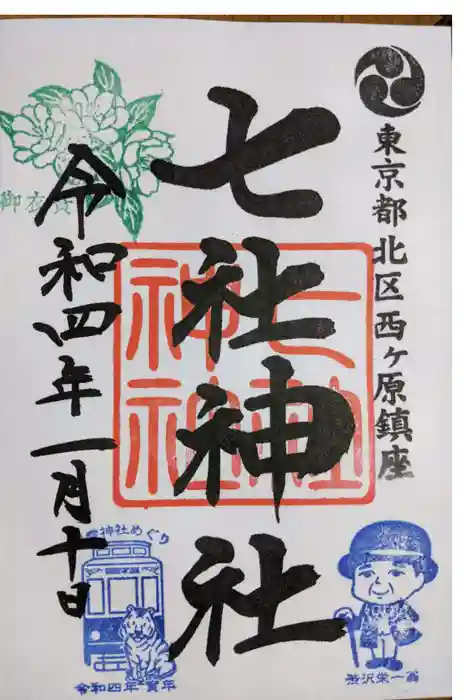 東京都北区西ヶ原鎮座
七社神社
七社
神社
令和四年一月十日
神社めぐり
令和四年 寅年
渋沢栄一翁